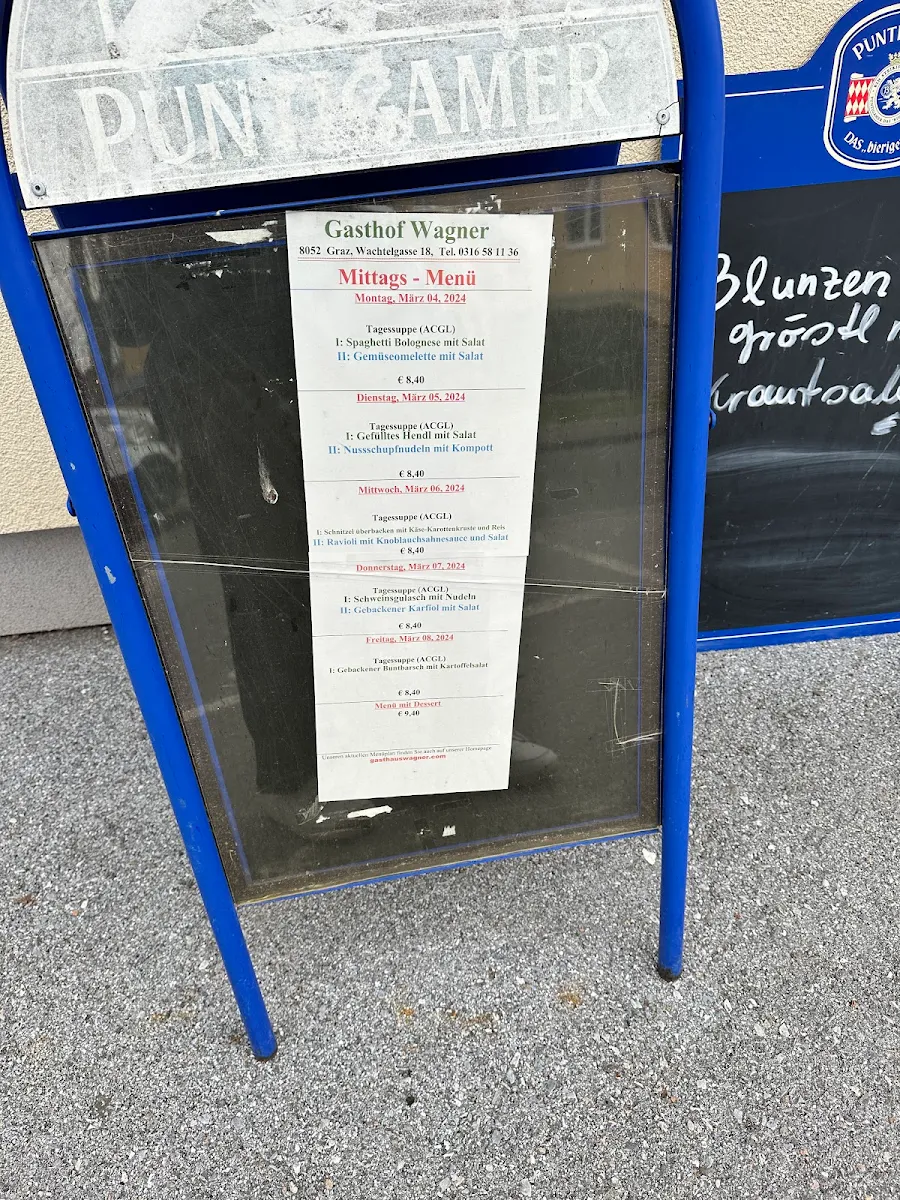 PUNTIGAMER
Gasthof Wagner
8052 Graz, Wachtelgasse 18, Tel. 0316 58 11 36
Mittags - Menü
Montag, März 04, 2024
Tagessuppe (ACGL)
I: Spaghetti Bolognese mit Salat
II: Gemüseomelette mit Salat
€ 8,40
Dienstag, März 05, 2024
Tagessuppe (ACGL)
I: Gefülltes Hendl mit Salat
II: Nussschupfnudeln mit Kompott
€ 8,40
Mittwoch, März 06, 2024
Tagessuppe (ACGL)
I: Schnitzel überbacken mit Käse-Karottenkruste und Reis
II: Ravioli mit Knoblauchsahnesauce und Salat
€ 8,40
Donnerstag, März 07, 2024
Tagessuppe (ACGL)
I: Schweinsgulasch mit Nudeln
II: Gebackener Karfiol mit Salat
€ 8,40
Freitag, März 08, 2024
Tagessuppe (ACGL)
I: Gebackener Buntbarsch mit Kartoffelsalat
€ 8,40
Menü mit Dessert
€ 9,40
Unseren aktuellen Menüplan finden Sie auch auf unserer Homepage
gasthauswagner.com
PUNTI
DAS „bierige
Blunzen
gröstl m
Krautsal